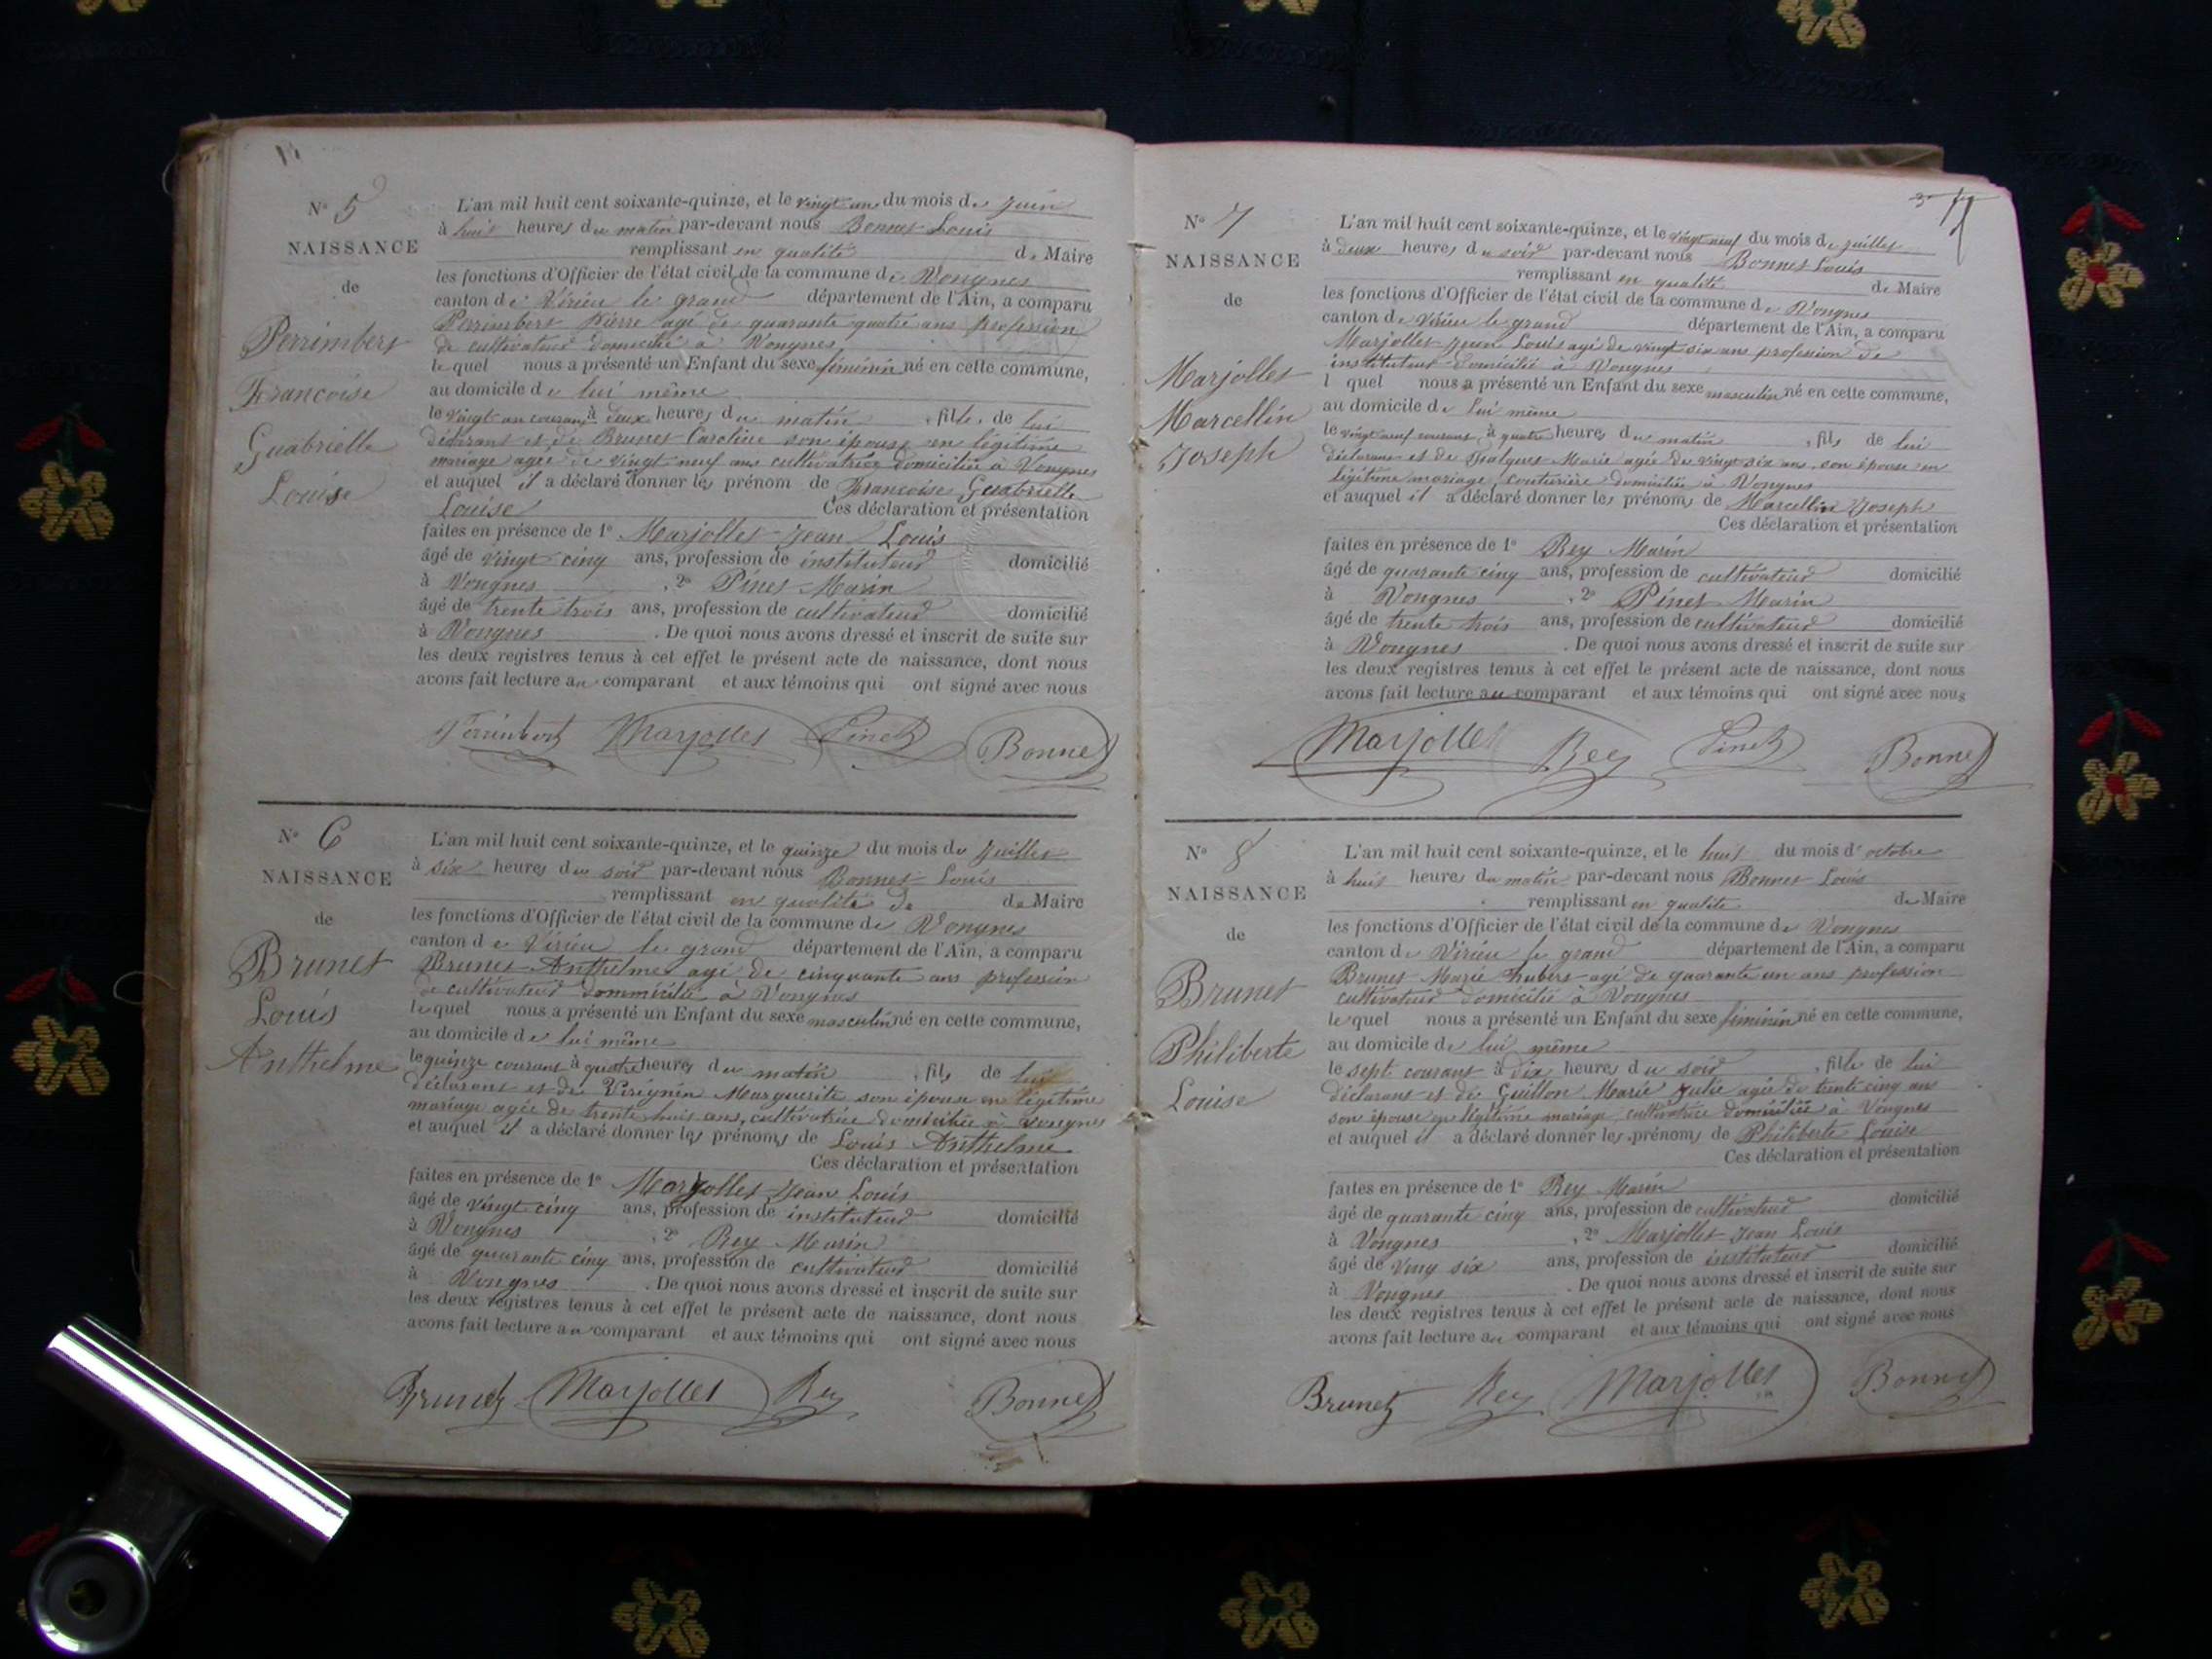 N° 5
NAISSANCE
de
Perrimbert
Francoise
Guabrielle
Louise
L'an mil huit cent soixante-quinze, et le vingt un du mois de Juin
à huit heures du matin par-devant nous Bonnet Louis
remplissant en qualité de Maire
les fonctions d'Officier de l'état civil de la commune de Vongnes
canton de Virieu le grand département de l'Ain, a comparu
Perrimbert Pierre agé de quarante quatre ans profession
de cultivateur domicilié à Vongnes
lequel nous a présenté un Enfant du sexe féminin né en cette commune,
au domicile de lui même
le vingt un courant à deux heures du matin, fille de lui
déclarant et de Brunet Caroline son épouse en légitime
mariage agée de vingt neuf ans cultivatrice domiciliée à Vongnes
et auquel il a déclaré donner les prénom de Francoise Guabrielle
Louise Ces déclaration et présentation
faites en présence de 1° Marjollet Jean Louis
âgé de vingt cinq ans, profession de instituteur domicilié
à Vongnes, 2° Pinet Marin
âgé de trente trois ans, profession de cultivateur domicilié
à Vongnes. De quoi nous avons dressé et inscrit de suite sur
les deux registres tenus à cet effet le présent acte de naissance, dont nous
avons fait lecture au comparant et aux témoins qui ont signé avec nous
Perrimbert Marjollet Pinet Bonnet
N° 6
NAISSANCE
de
Brunet
Louis
Anthelme
L'an mil huit cent soixante-quinze, et le quinze du mois de Juillet
à six heures du soir par-devant nous Bonnet Louis
remplissant en qualité de de Maire
les fonctions d'Officier de l'état civil de la commune de Vongnes
canton de Virieu le grand département de l'Ain, a comparu
Brunet Anthelme agé de cinquante ans profession
de cultivateur dommicilié à Vongnes
lequel nous a présenté un Enfant du sexe masculin né en cette commune,
au domicile de lui même
le quinze courant à quatre heures du matin, fils de lui
déclarant et de Marguerite son épouse en légitime
mariage agée de trente huit ans, cultivatrice domiciliée à Vongnes
et auquel il a déclaré donner les prénoms de Louis Anthelme
Ces déclaration et présentation
faites en présence de 1° Marjollet Jean Louis
âgé de vingt cinq ans, profession de instituteur domicilié
à Vongnes, 2° Rey Marin
âgé de quarante cinq ans, profession de cultivateur domicilié
à Vongnes. De quoi nous avons dressé et inscrit de suite sur
les deux registres tenus à cet effet le présent acte de naissance, dont nous
avons fait lecture au comparant et aux témoins qui ont signé avec nous
Brunet Marjollet Rey Bonnet
N° 7
NAISSANCE
de
Marjollet
Marcellin
Joseph
L'an mil huit cent soixante-quinze, et le vingt neuf du mois de juillet
à deux heures du soir par-devant nous Bonnet Louis
remplissant en qualité de Maire
les fonctions d'Officier de l'état civil de la commune de Vongnes
canton de Virieu le grand département de l'Ain, a comparu
Marjollet Jean Louis agé de vingt six ans profession de
instituteur domicilié à Vongnes
l quel nous a présenté un Enfant du sexe masculin né en cette commune,
au domicile de lui même
le vingt neuf courant à quatre heures du matin, fils de lui
déclarant et de Marie agée de vingt six ans, son épouse en
légitime mariage, couturière domiciliée à Vongnes
et auquel il a déclaré donner les prénoms de Marcellin Joseph
Ces déclaration et présentation
faites en présence de 1° Rey Marin
âgé de quarante cinq ans, profession de cultivateur domicilié
à Vongnes, 2° Pinet Marin
âgé de trente trois ans, profession de cultivateur domicilié
à Vongnes. De quoi nous avons dressé et inscrit de suite sur
les deux registres tenus à cet effet le présent acte de naissance, dont nous
avons fait lecture au comparant et aux témoins qui ont signé avec nous
Marjollet Rey Pinet Bonnet
N° 8
NAISSANCE
de
Brunet
Philiberte
Louise
L'an mil huit cent soixante-quinze, et le huit du mois d'octobre
à huit heures du matin par-devant nous Bonnet Louis
remplissant en qualité de Maire
les fonctions d'Officier de l'état civil de la commune de Vongnes
canton de Virieu le grand département de l'Ain, a comparu
Brunet Marie hubert agé de quarante un ans profession
cultivateur domicilié à Vongnes
lequel nous a présenté un Enfant du sexe féminin né en cette commune,
au domicile de lui même
le sept courant à dix heures du soir, fille de lui
déclarant et de Guillon Marie Julie agée de trente cinq ans
son épouse en légitime mariage cultivatrice domiciliée à Vongnes
et auquel il a déclaré donner les prénoms de Philiberte Louise
Ces déclaration et présentation
faites en présence de 1° Rey Marin
âgé de quarante cinq ans, profession de cultivateur domicilié
à Vongnes, 2° Marjollet Jean Louis
âgé de ving six ans, profession de instituteur domicilié
à Vongnes. De quoi nous avons dressé et inscrit de suite sur
les deux registres tenus à cet effet le présent acte de naissance, dont nous
avons fait lecture au comparant et aux témoins qui ont signé avec nous
Brunet Rey Marjollet Bonnet